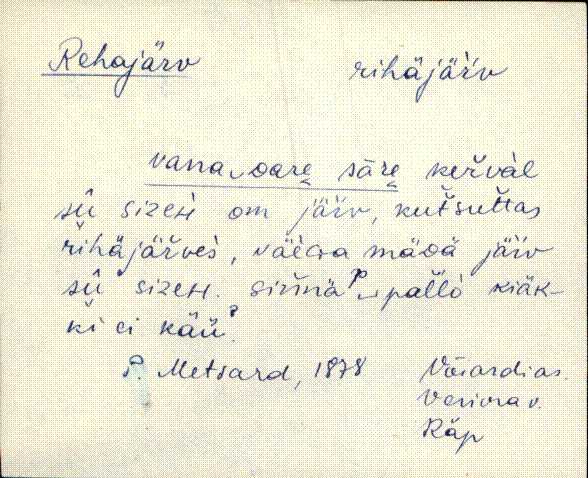 Rehajärv rihäjäŕv
vana oare säre keŕväl
sû sizeh om jäŕv, kutsuttas
rihäjäŕves, väega mädä jäŕv
sû sizeh. sinnä pallo kiäk-
ki ei käü.
P. Metsard, 1878 Võiardi as.
Veriora v.
Räp